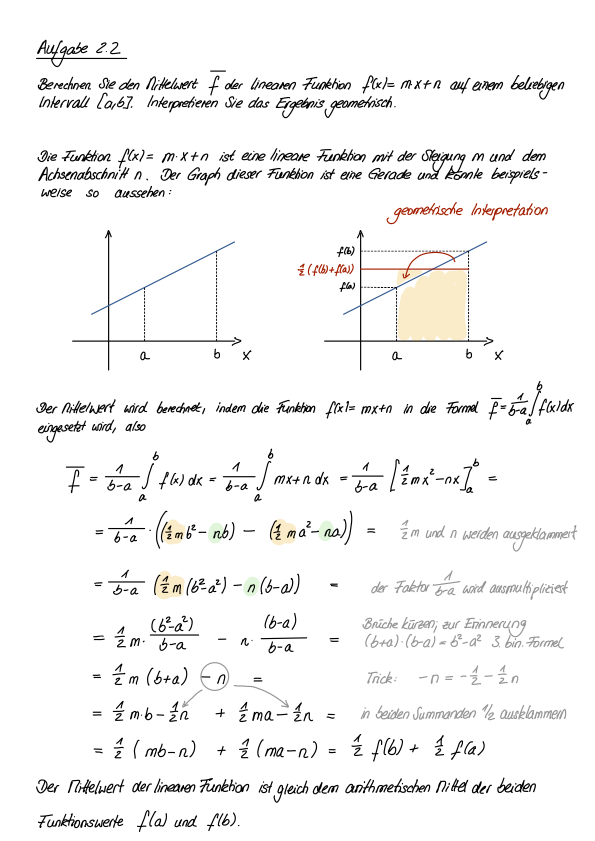 Aufgabe 2.2
Berechnen Sie den Mittelwert f̅ der linearen Funktion f(x)= m·x+n auf einem beliebigen
Intervall [a,b]. Interpretieren Sie das Ergebnis geometrisch.
Die Funktion f(x)= m·x+n ist eine lineare Funktion mit der Steigung m und dem
Achsenabschnitt n. Der Graph dieser Funktion ist eine Gerade und könnte beispiels-
weise so aussehen:
geometrische Interpretation
a b x
f(b)
1/2 (f(b)+f(a))
f(a)
a b x
Der Mittelwert wird berechnet, indem die Funktion f(x)= mx+n in die Formel f̅ = 1/(b-a) ∫_a^b f(x)dx
eingesetzt wird, also
f̅ = 1/(b-a) ∫_a^b f(x) dx = 1/(b-a) ∫_a^b mx+n dx = 1/(b-a) [1/2 mx² - nx]_a^b =
= 1/(b-a) · ((1/2 mb² - nb) - (1/2 ma² - na)) = 1/2 m und n werden ausgeklammert
= 1/(b-a) (1/2 m (b²-a²) - n (b-a)) = der Faktor 1/(b-a) wird ausmultipliziert
= 1/2 m · (b²-a²)/(b-a) - n · (b-a)/(b-a) = Brüche kürzen; zur Erinnerung
(b+a)·(b-a) = b²-a² 3. bin. Formel
= 1/2 m (b+a) - n = Trick: -n = -1/2 - 1/2 n
= 1/2 m·b - 1/2 n + 1/2 ma - 1/2 n = in beiden Summanden 1/2 ausklammern
= 1/2 (mb-n) + 1/2 (ma-n) = 1/2 f(b) + 1/2 f(a)
Der Mittelwert der linearen Funktion ist gleich dem arithmetischen Mittel der beiden
Funktionswerte f(a) und f(b).